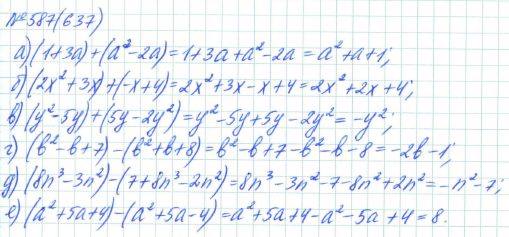 №587(637)
а) (1+3a)+(a²-2a)=1+3a+a²-2a=a²+a+1;
б) (2x²+3x)+(-x+4)=2x²+3x-x+4=2x²+2x+4;
в) (y²-5y)+(5y-2y²)=y²-5y+5y-2y²=-y²;
г) (b²-b+7)-(b²+b+8)=b²-b+7-b²-b-8=-2b-1;
д) (8n³-3n²)-(7+8n³-2n²)=8n³-3n²-7-8n³+2n²=-n²-7;
е) (a²+5a+4)-(a²+5a-4)=a²+5a+4-a²-5a+4=8.